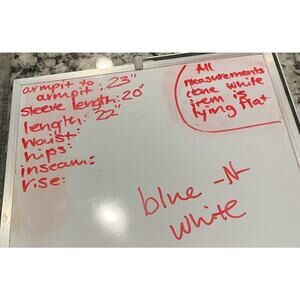 armpit to
armpit: 23"
sleeve length: 20"
length: 22"
waist:
hips:
inseam:
rise:
All
measurements
done while
item is
lying flat
blue -N
white